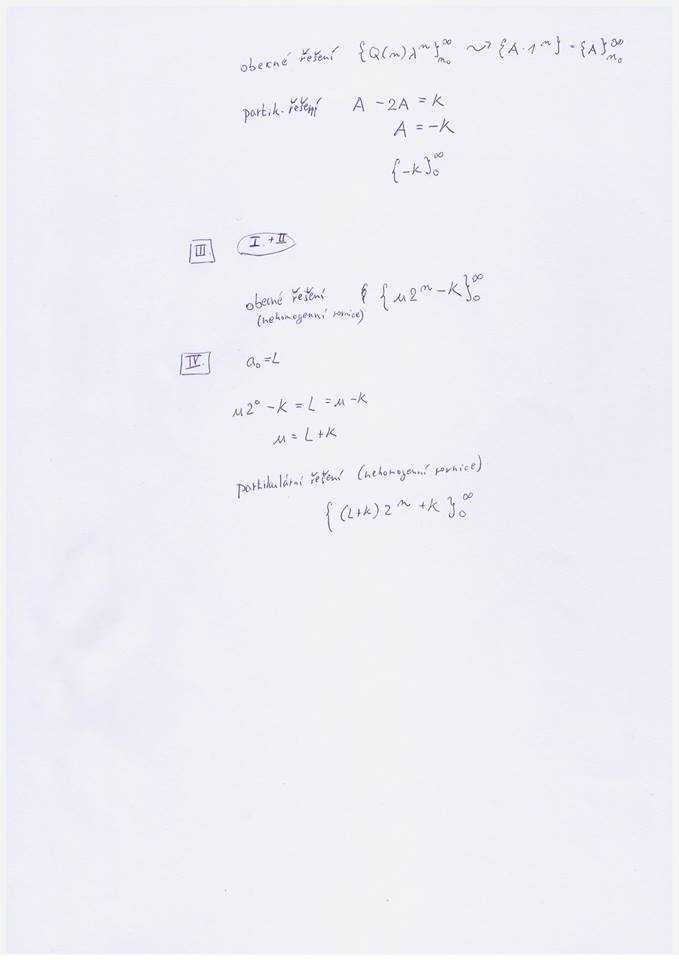 obecné řešení {Q(n)λⁿ}_{n₀}^∞ ⤳ {A·1ⁿ} = {A}_{n₀}^∞
partik. řešení A - 2A = K
A = -K
{-K}₀^∞
III. I. + II
obecné řešení { μ2ⁿ - K}₀^∞
(nehomogenní rovnice)
IV. a₀ = L
μ2⁰ - K = L = μ - K
μ = L+K
partikulární řešení (nehomogenní rovnice)
{ (L+K) 2ⁿ + K }₀^∞